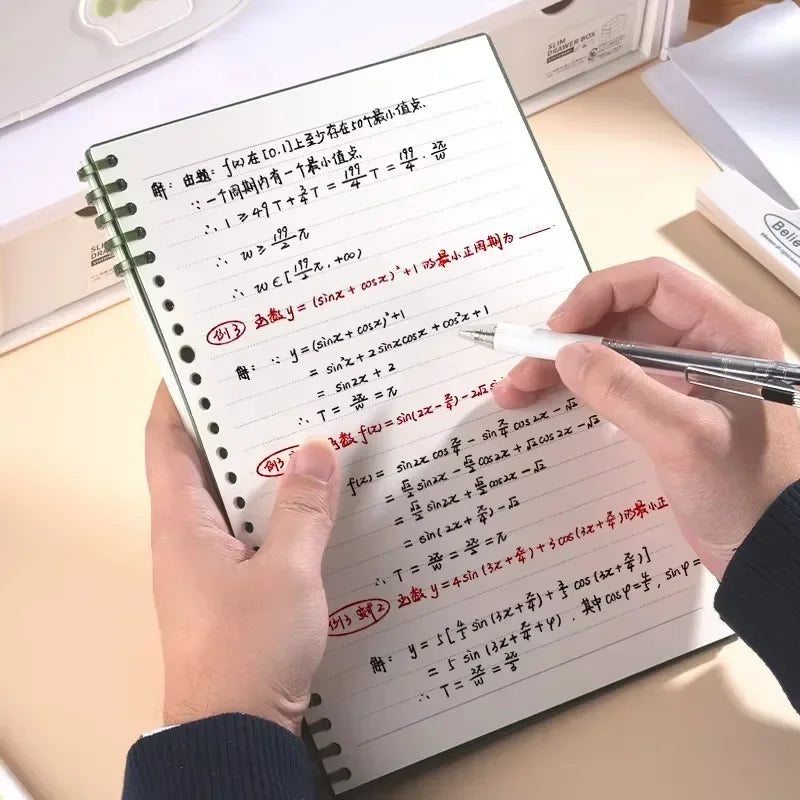 SLIM
DRAWER BOX
SLIM
Belie
解: 由题: f(x)在[0,1]上至少存在50个最小值点.
∵ 一个周期内有一个最小值点
∴ 1 ≥ 49T + 3/4 T = 199/4 T = 199/4 · 2π/w
∴ w ≥ 199/2 π
∴ w ∈ [199/2 π, +∞)
例3 函数 y = (sinx + cosx)² + 1 的最小正周期为 ____.
解: ∵ y = (sinx + cosx)² + 1
= sin²x + 2sinxcosx + cos²x + 1
= sin2x + 2
∴ T = 2π/w = π
例3 函数 f(x) = sin(2x - π/4) - 2√2 si
f(x) = sin2x cos π/4 - sin π/4 cos2x - √2
= √2/2 sin2x - √2/2 cos2x + √2 cos2x - √2
= √2/2 sin2x + √2/2 cos2x - √2
= sin(2x + π/4) - √2
∴ T = 2π/w = 2π/2 = π
例3 变式2 函数 y = 4sin(3x + π/4) + 3cos(3x + π/4) 的最小正
解: y = 5[4/5 sin(3x + π/4) + 3/5 cos(3x + π/4)]
= 5 sin(3x + π/4 + φ) . 其中 cosφ = 4/5 , sinφ =
∴ T = 2π/w = 2π/3